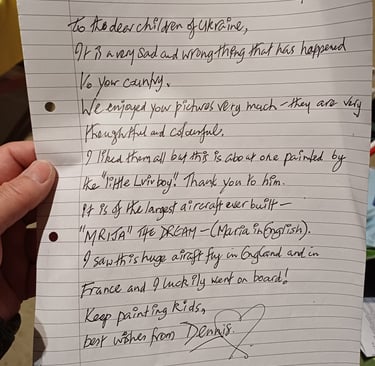 To the dear children of Ukraine,
It is a very sad and wrong thing that has happened
to your county.
We enjoyed your pictures very much - they are very
thoughtful and colourful.
I liked them all but this is about one painted by
the "little Lviv boy". Thank you to him.
It is of the largest aircraft ever built -
"MRIJA" THE DREAM - (Maria in English).
I saw this huge aircaft fly in England and in
France and I luckily went on board!
Keep painting kids,
best wishes from Dennis.